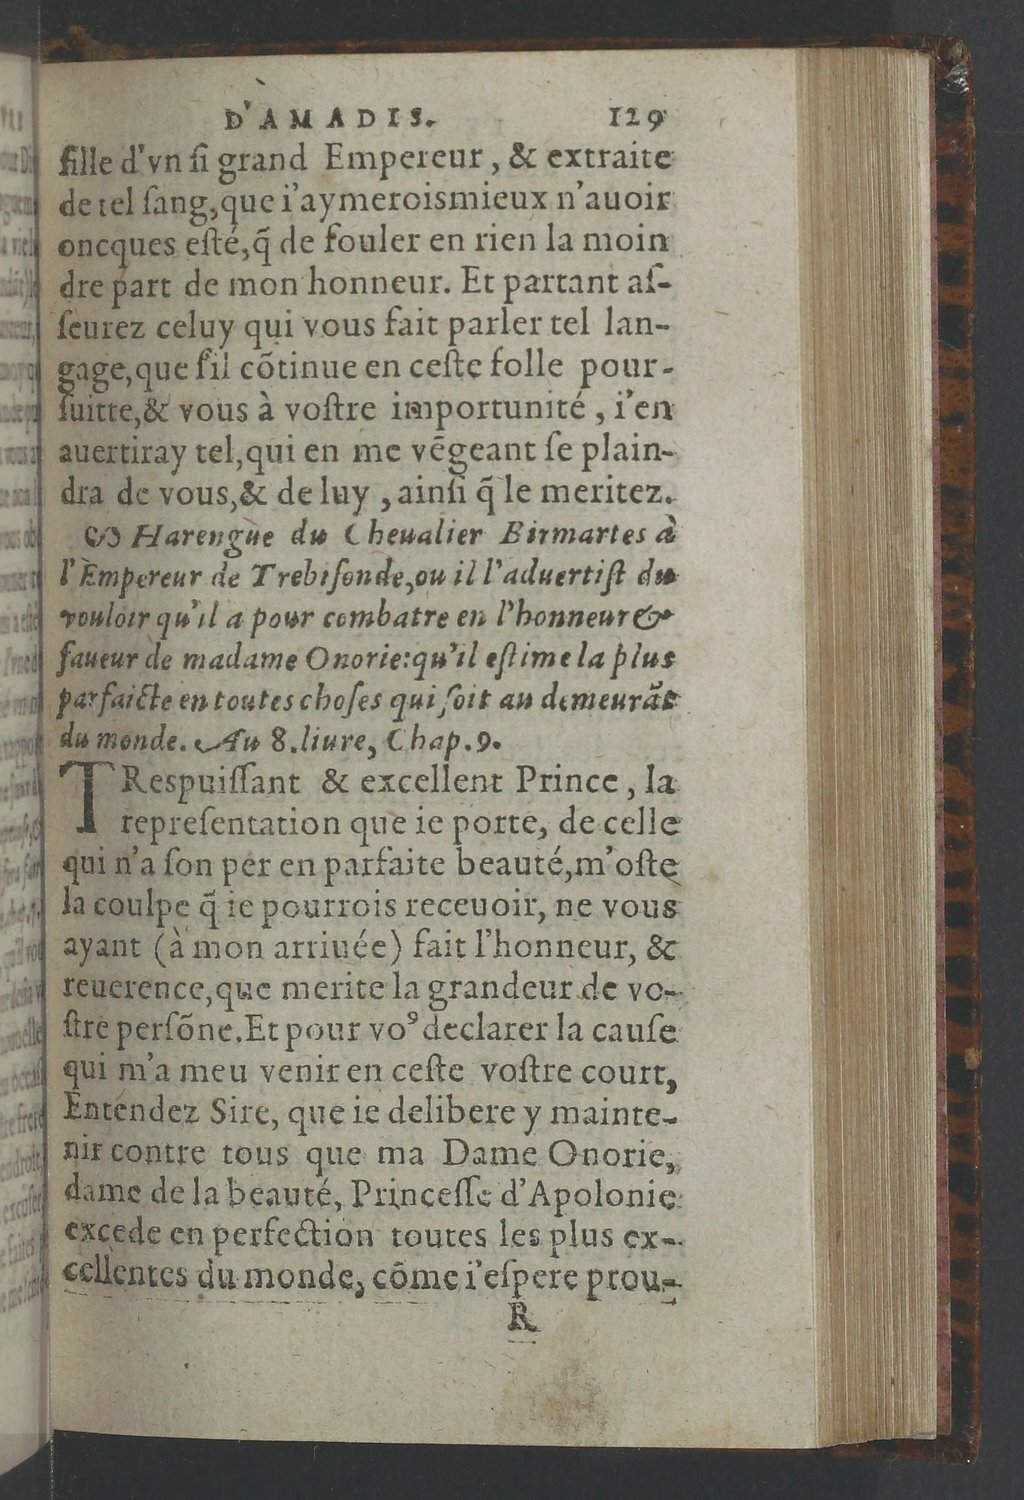 D'AMADIS. 129
fille d'vn ſi grand Empereur, & extraite
de tel ſang, que i'aymeroismieux n'auoir
oncques eſté, q̃ de fouler en rien la moin
dre part de mon honneur. Et partant aſ-
ſeurez celuy qui vous fait parler tel lan-
gage, que ſil cõtinue en ceſte folle pour-
ſuitte, & vous à voſtre importunité, i'en
auertiray tel, qui en me vẽgeant ſe plain-
dra de vous, & de luy, ainſi q̃ le meritez.
Harengue du Cheualier Birmartes à
l'Empereur de Trebiſonde, ou il l'aduertiſt du
vouloir qu'il a pour combatre en l'honneur &
faueur de madame Onorie: qu'il eſtime la plus
parfaicte en toutes choſes qui ſoit au demeurãt
du monde. Au 8. liure, Chap. 9.
TReſpuiſſant & excellent Prince, la
repreſentation que ie porte, de celle
qui n'a ſon per en parfaite beauté, m'oſte
la coulpe q̃ ie pourrois receuoir, ne vous
ayant (à mon arriuée) fait l'honneur, &
reuerence, que merite la grandeur de vo-
ſtre perſõne. Et pour vo⁹ declarer la cauſe
qui m'a meu venir en ceſte voſtre court,
Entendez Sire, que ie delibere y mainte-
nir contre tous que ma Dame Onorie,
dame de la beauté, Princeſſe d'Apolonie
excede en perfection toutes les plus ex-
cellentes du monde, cõme i'eſpere prou-
R